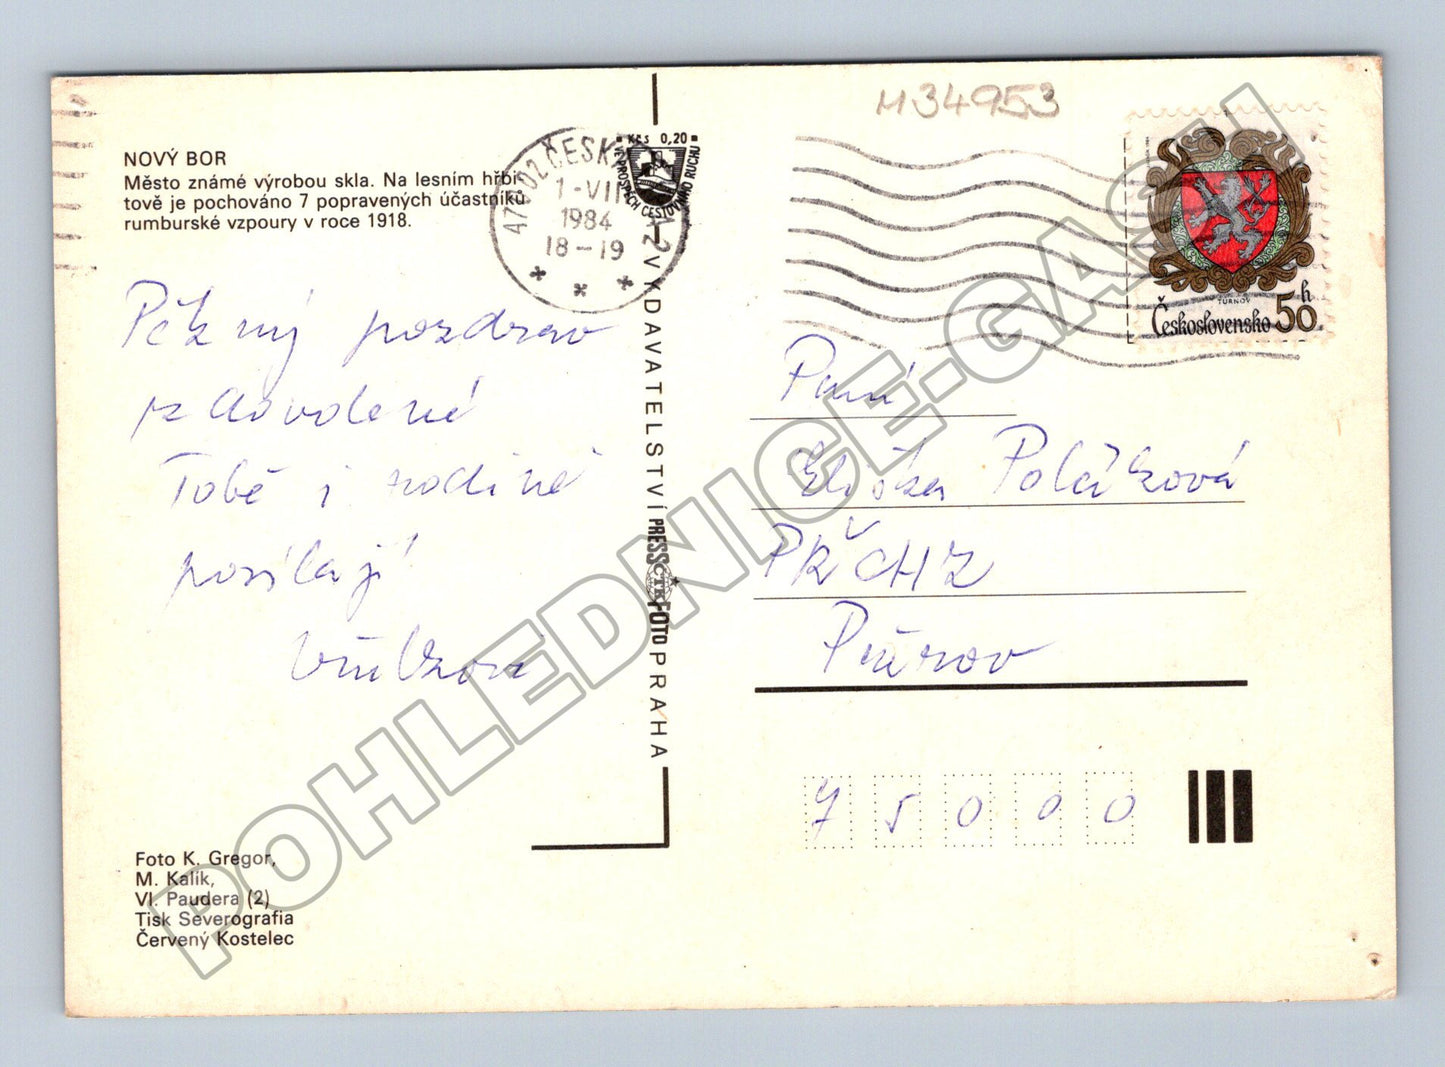 M34953
NOVÝ BOR
Město známé výrobou skla. Na lesním hřbi-
tově je pochováno 7 popravených účastníků
rumburské vzpoury v roce 1918.
470 02 ČESKÁ
1-VII
1984
18-19
Kčs 0,20
VE PROSPĚCH CESTOVNÍHO RUCHU
TURNOV
Československo 50 h
Pěkný pozdrav
z dovolené
Tobě i rodině
posílají
VYDAVATELSTVÍ PRESSFOTO PRAHA
ČTK
Paní
Eliška Poláčková
PŘCHZ
Přerov
75000
Foto K. Gregor,
M. Kalik,
Vl. Paudera (2)
Tisk Severografia
Červený Kostelec
POHLEDNICE-GASH